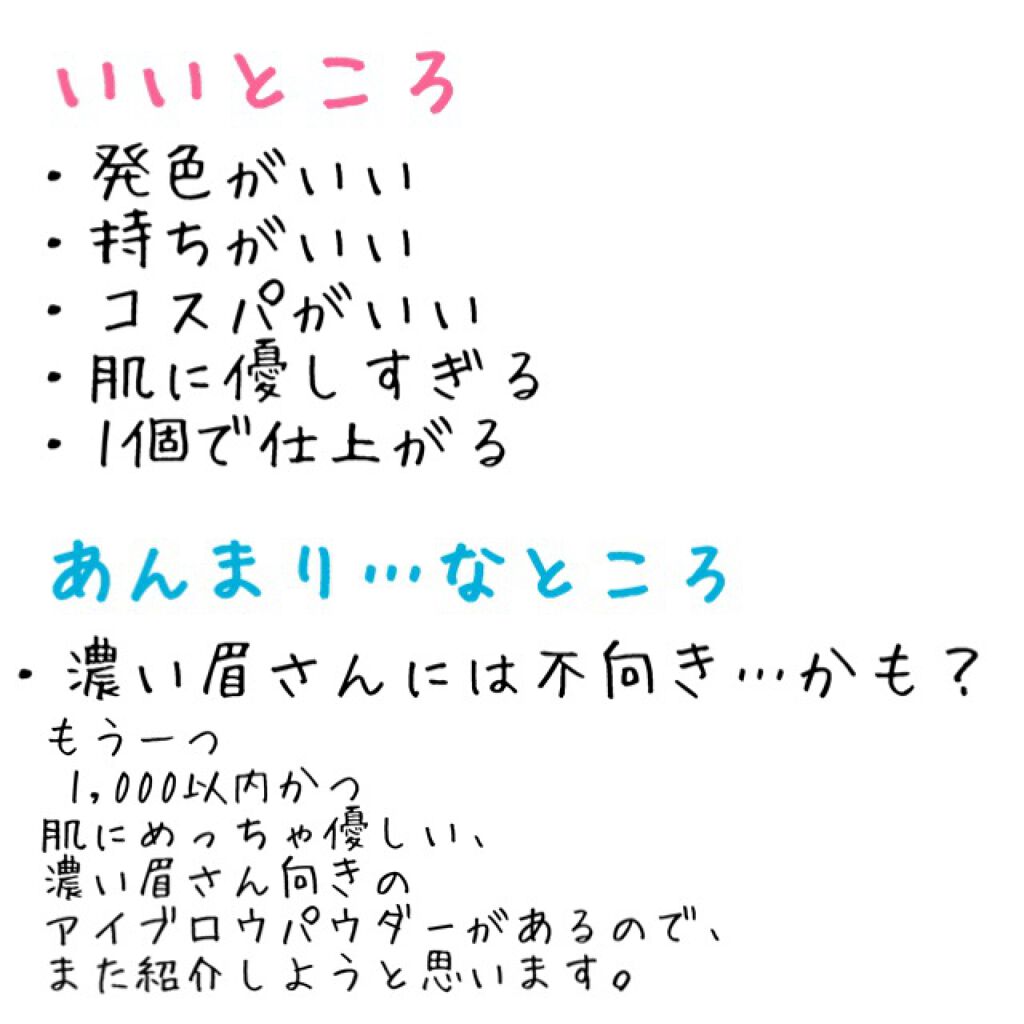 いいところ
・発色がいい
・持ちがいい
・コスパがいい
・肌に優しすぎる
・1個で仕上がる
あんまり…なところ
・濃い眉さんには不向き…かも？
もう一つ
1,000以内かつ
肌にめっちゃ優しい、
濃い眉さん向きの
アイブロウパウダーがあるので、
また紹介しようと思います。